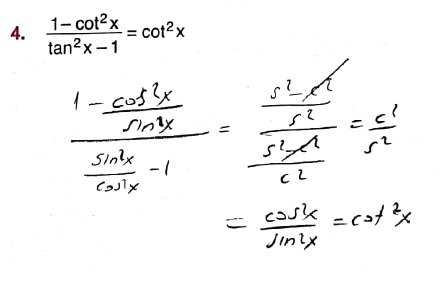 4. (1 − cot²x)/(tan²x − 1) = cot²x
(1 − cos²x/sin²x)/(sin²x/cos²x − 1) = ((s² − c²)/s²)/((s² − c²)/c²) = c²/s²
= cos²x/sin²x = cot²x